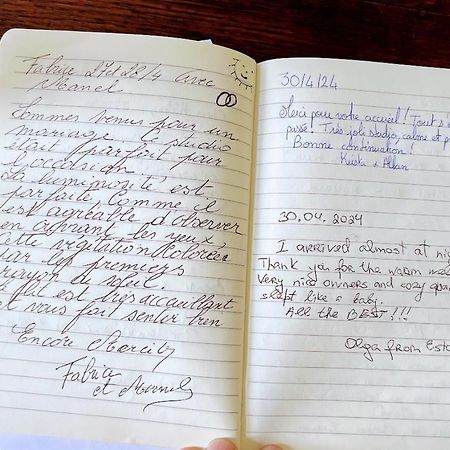 Fabrice 27 et 28/4 avec
Manel
Sommes venus pour un
mariage. Ce studio
était parfait pour
l'occasion
La luminosité est
parfaite, comme il
est agréable d'observer
en ouvrant les yeux
cette végétation colorée
par les premiers
rayon de soleil.
est très accueillant
et vous fait sentir bien
Encore Merci
Fabrice
et Manel
30/4/24
Merci pour votre accueil! Tout s'
passé! Très joli studio, calme et p
Bonne continuation!
30.04.2024
I arrived almost at nig
Thank you for the warm wel
very nice owners and cozy apar
slept like a baby.
All the BEST!!!
Olga from Esto